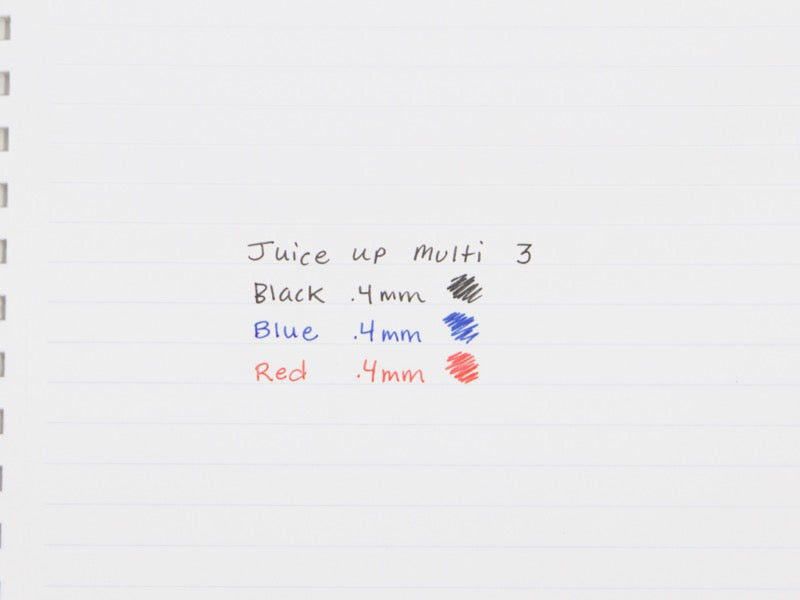 Juice up multi 3
Black .4mm
Blue .4mm
Red .4mm